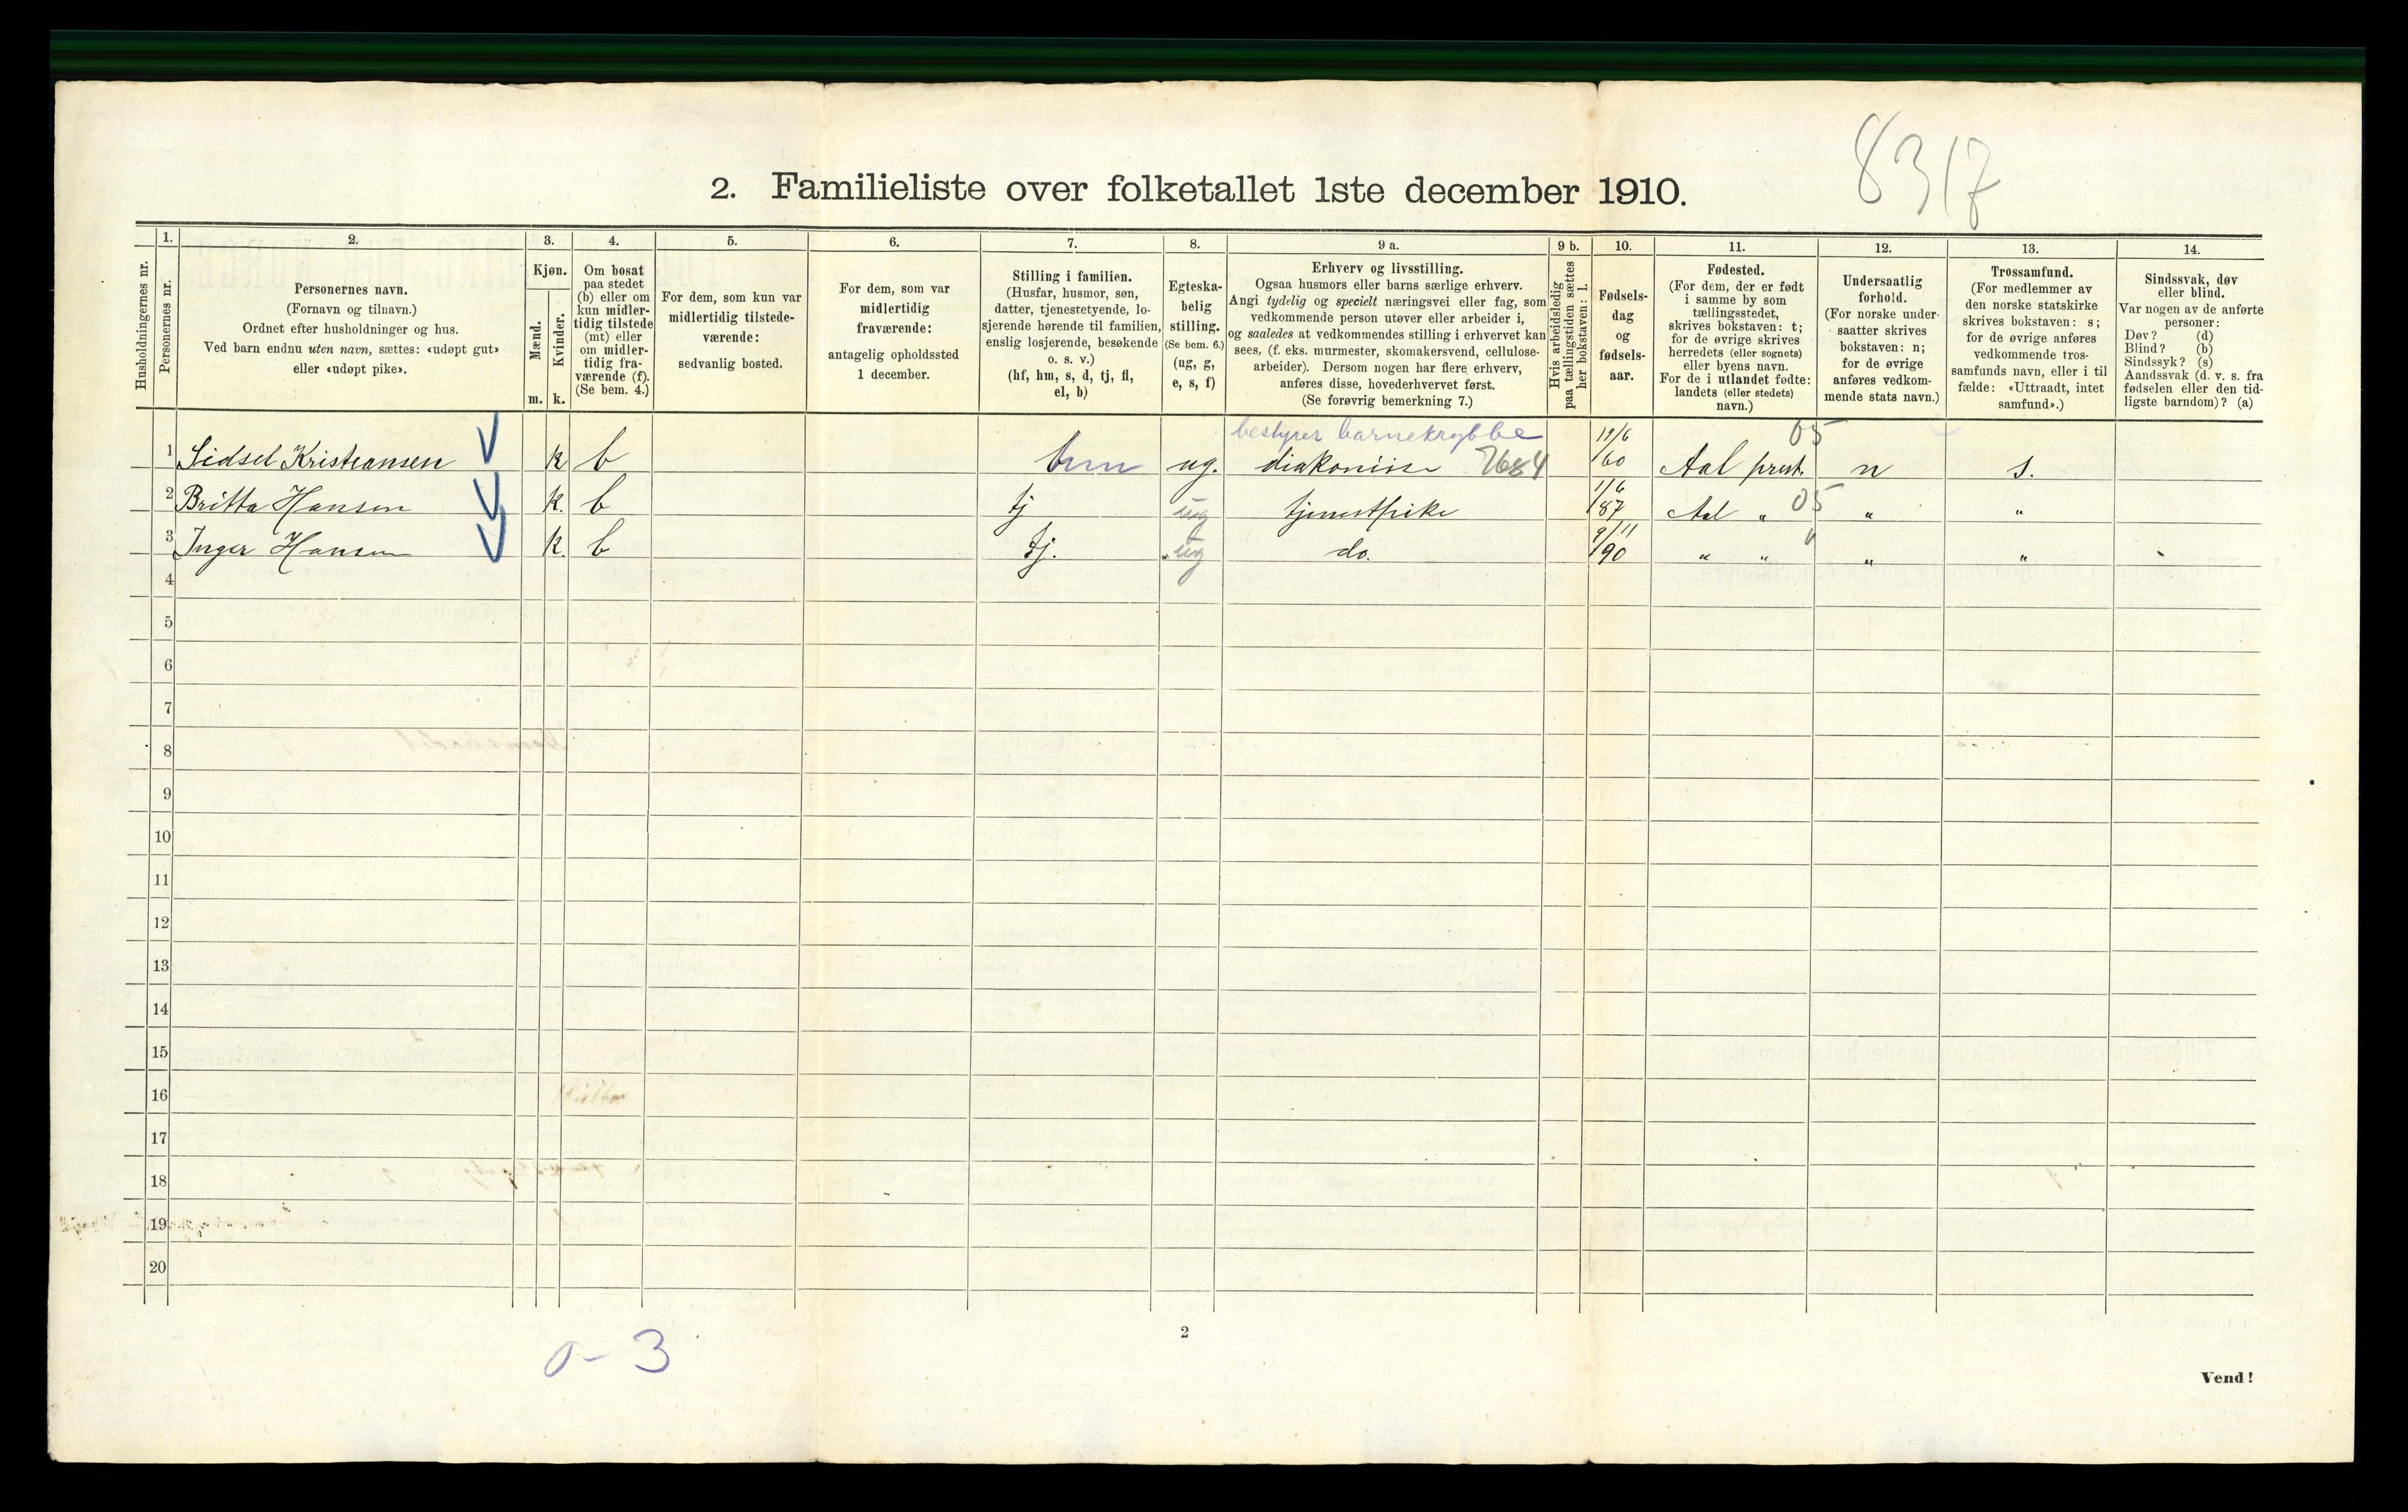 8317
2. Familieliste over folketallet 1ste december 1910.
Husholdningernes nr.
1.
Personernes nr.
2.
Personernes navn.
(Fornavn og tilnavn.)
Ordnet efter husholdninger og hus.
Ved barn endnu uten navn, sættes: «udøpt gut»
eller «udøpt pike».
3.
Kjøn.
Mænd.
Kvinder.
m. k.
4.
Om bosat
paa stedet
(b) eller om
kun midler-
tidig tilstede
(mt) eller
om midler-
tidig fra-
værende (f).
(Se bem. 4.)
5.
For dem, som kun var
midlertidig tilstede-
værende:
sedvanlig bosted.
6.
For dem, som var
midlertidig
fraværende:
antagelig opholdssted
1 december.
7.
Stilling i familien.
(Husfar, husmor, søn,
datter, tjenestetyende, lo-
sjerende hørende til familien,
enslig losjerende, besøkende
o. s. v.)
(hf, hm, s, d, tj, fl,
el, b)
8.
Egteska-
belig
stilling.
(Se bem. 6.)
(ug, g,
e, s, f)
9 a.
Erhverv og livsstilling.
Ogsaa husmors eller barns særlige erhverv.
Angi tydelig og specielt næringsvei eller fag, som
vedkommende person utøver eller arbeider i,
og saaledes at vedkommendes stilling i erhvervet kan
sees, (f. eks. murmester, skomakersvend, cellulose-
arbeider). Dersom nogen har flere erhverv,
anføres disse, hovederhvervet først.
(Se forøvrig bemerkning 7.)
9 b.
Hvis arbeidsledig
paa tællingstiden sættes
her bokstaven: l.
10.
Fødsels-
dag
og
fødsels-
aar.
11.
Fødested.
(For dem, der er født
i samme by som
tællingsstedet,
skrives bokstaven: t;
for de øvrige skrives
herredets (eller sognets)
eller byens navn.
For de i utlandet fødte:
landets (eller stedets)
navn.)
12.
Undersaatlig
forhold.
(For norske under-
saatter skrives
bokstaven: n;
for de øvrige
anføres vedkom-
mende stats navn.)
13.
Trossamfund.
(For medlemmer av
den norske statskirke
skrives bokstaven: s;
for de øvrige anføres
vedkommende tros-
samfunds navn, eller i til
fælde: «Uttraadt, intet
samfund».)
14.
Sindssvak, døv
eller blind.
Var nogen av de anførte
personer:
Døv? (d)
Blind? (b)
Sindssyk? (s)
Aandssvak (d. v. s. fra
fødselen eller den tid-
ligste barndom)? (a)
bestyrer barnekrybbe 05
1 Sidsel Kristiansen k b hm ug. diakonisse 7684 /60 Aal prest. n s.
2 Britta Hansen k. b tj ug tjenestpike 1/6 87 Aal " 05 " "
3 Inger Hansen k. b tj. ug do. 9/11 90 " " " " "
4
5
6
7
8
9
10
11
12
13
14
15
16
17
18
19
20
0 - 3
2
Vend!